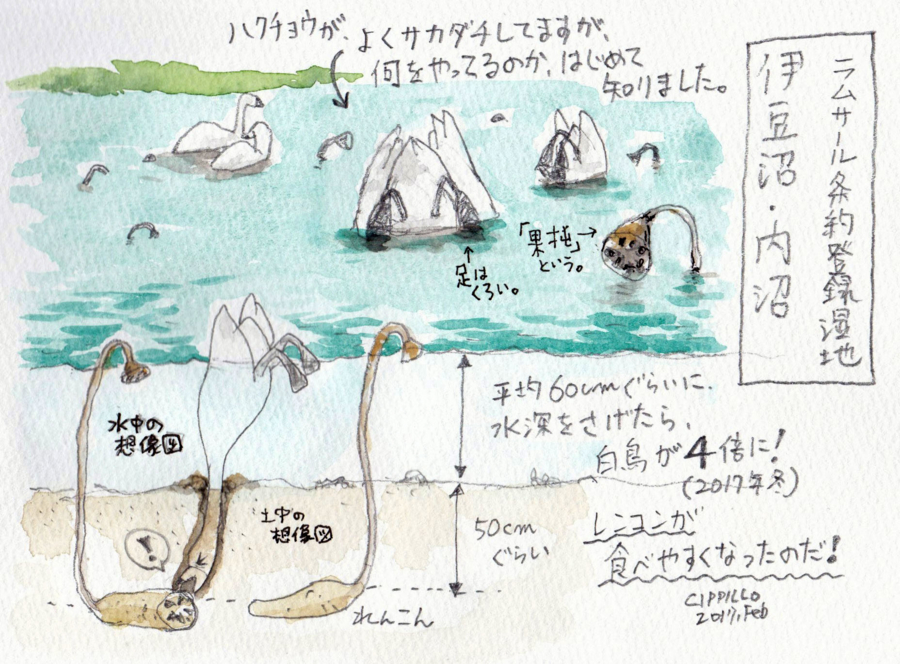 ラムサール条約登録湿地
伊豆沼・内沼
ハクチョウが、よくサカダチしてますが、
何をやってるのか、はじめて
知りました。
「果托」→
という。
↑
足は
くろい。
水中の
想像図
土中の
想像図
平均60cmぐらいに、
水深をさげたら、
白鳥が4倍に!
(2017年冬)
50cm
ぐらい
レンコンが
食べやすくなったのだ!
!
れんこん
CIPPILLO
2017,Feb